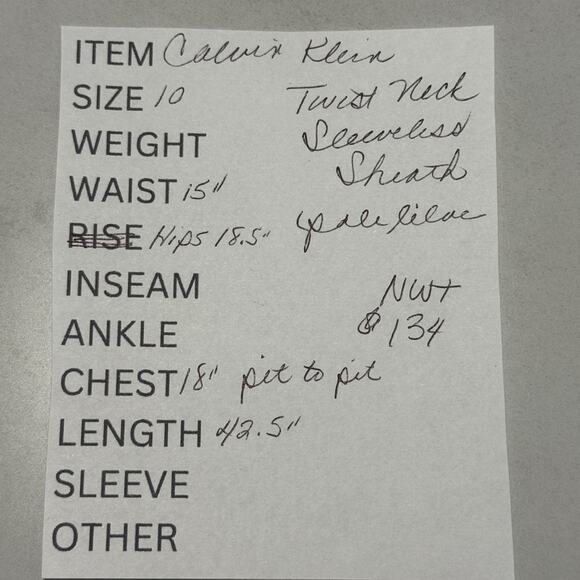 ITEM Calvin Klein
SIZE 10 Twist Neck
WEIGHT Sleeveless
WAIST 15" Sheath
RISE Hips 18.5" pale lilac
INSEAM NWT
ANKLE $134
CHEST 18" pit to pit
LENGTH 42.5"
SLEEVE
OTHER